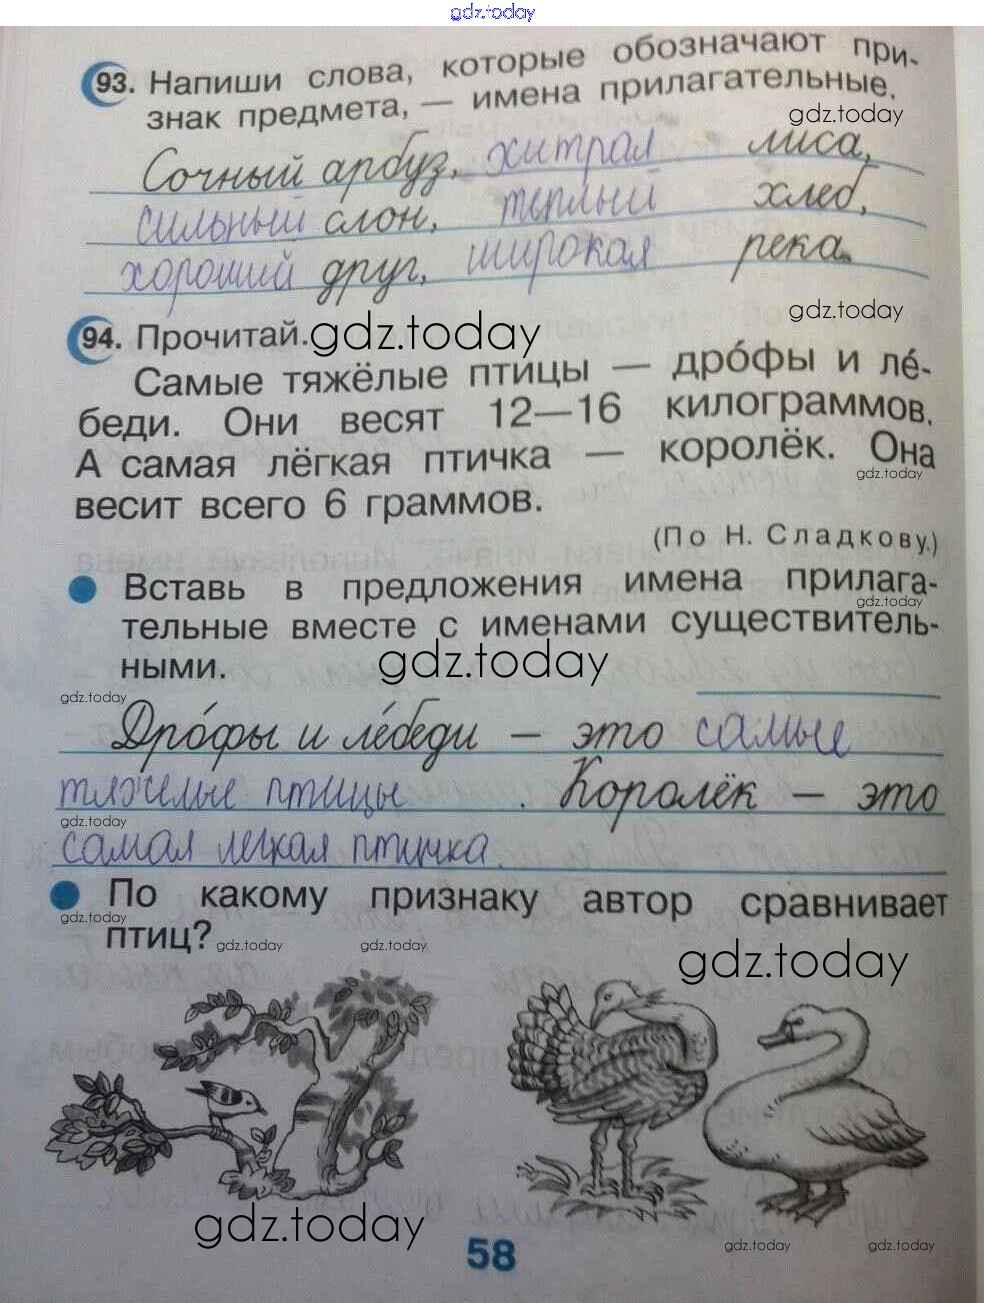 gdz.today
93. Напиши слова, которые обозначают при-
знак предмета, — имена прилагательные.
gdz.today
Сочный арбуз, хитрая лиса,
сильный слон, теплый хлеб,
хороший друг, широкая река.
gdz.today
94. Прочитай.
gdz.today
Самые тяжёлые птицы — дро́фы и ле́-
беди. Они весят 12—16 килограммов.
А самая лёгкая птичка — королёк. Она
gdz.today
весит всего 6 граммов.
(По Н. Сладкову.)
Вставь в предложения имена прилага-
gdz.today
тельные вместе с именами существитель-
ными.
gdz.today
gdz.today
Дро́фы и ле́беди – это самые
тяжелые птицы . Королёк – это
gdz.today
самая легкая птичка.
По какому признаку автор сравнивает
gdz.today
птиц?
gdz.today gdz.today
gdz.today
gdz.today
58
gdz.today gdz.today